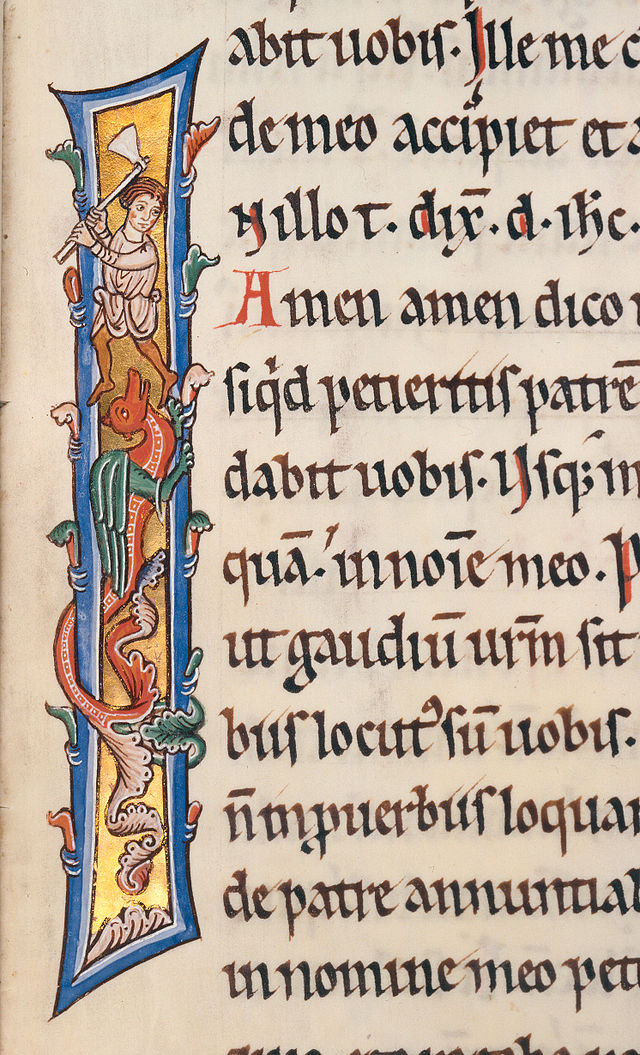 abit uobis. Ille me c
de meo accipiet et a
N illo t̄. dix̄. d. ih̄c.
Amen amen dico
siqͥd petieritis patrē
dabit uobis. Usq; m
quā. in noīe meo. P
ut gaudiū ur̄m sit
biis locutꝰ sū uobis.
n̄ in ꝓuerbiis loquar
de patre annuntiab
in nomine meo pet